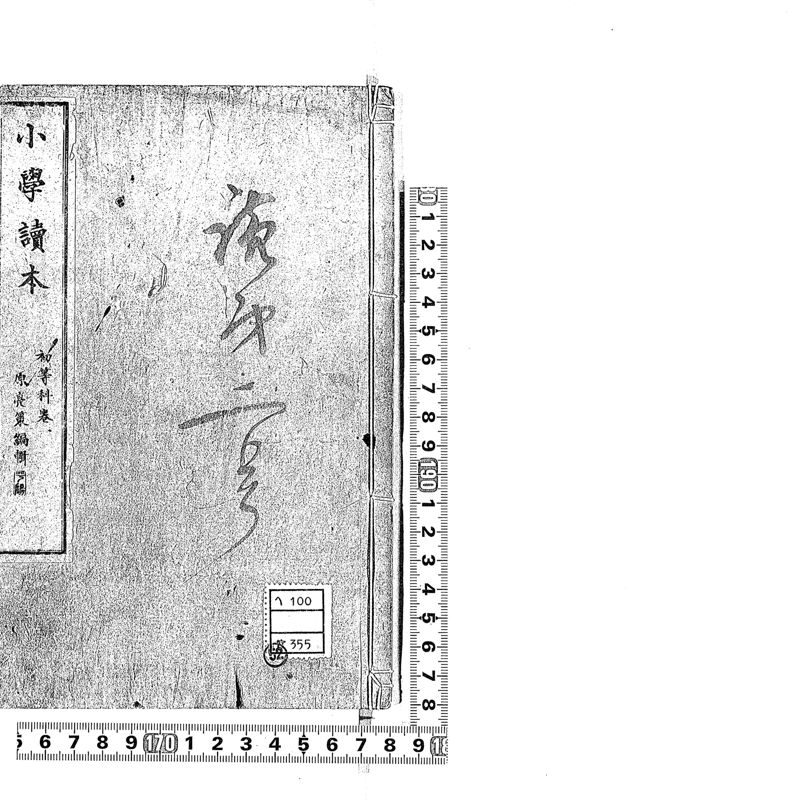 小學讀本
初等科卷一
原亮策編輯
第二号
へ 100
355
52
80 1 2 3 4 5 6 7 8 9 190 1 2 3 4 5 6 7 8
5 6 7 8 9 170 1 2 3 4 5 6 7 8 9 18